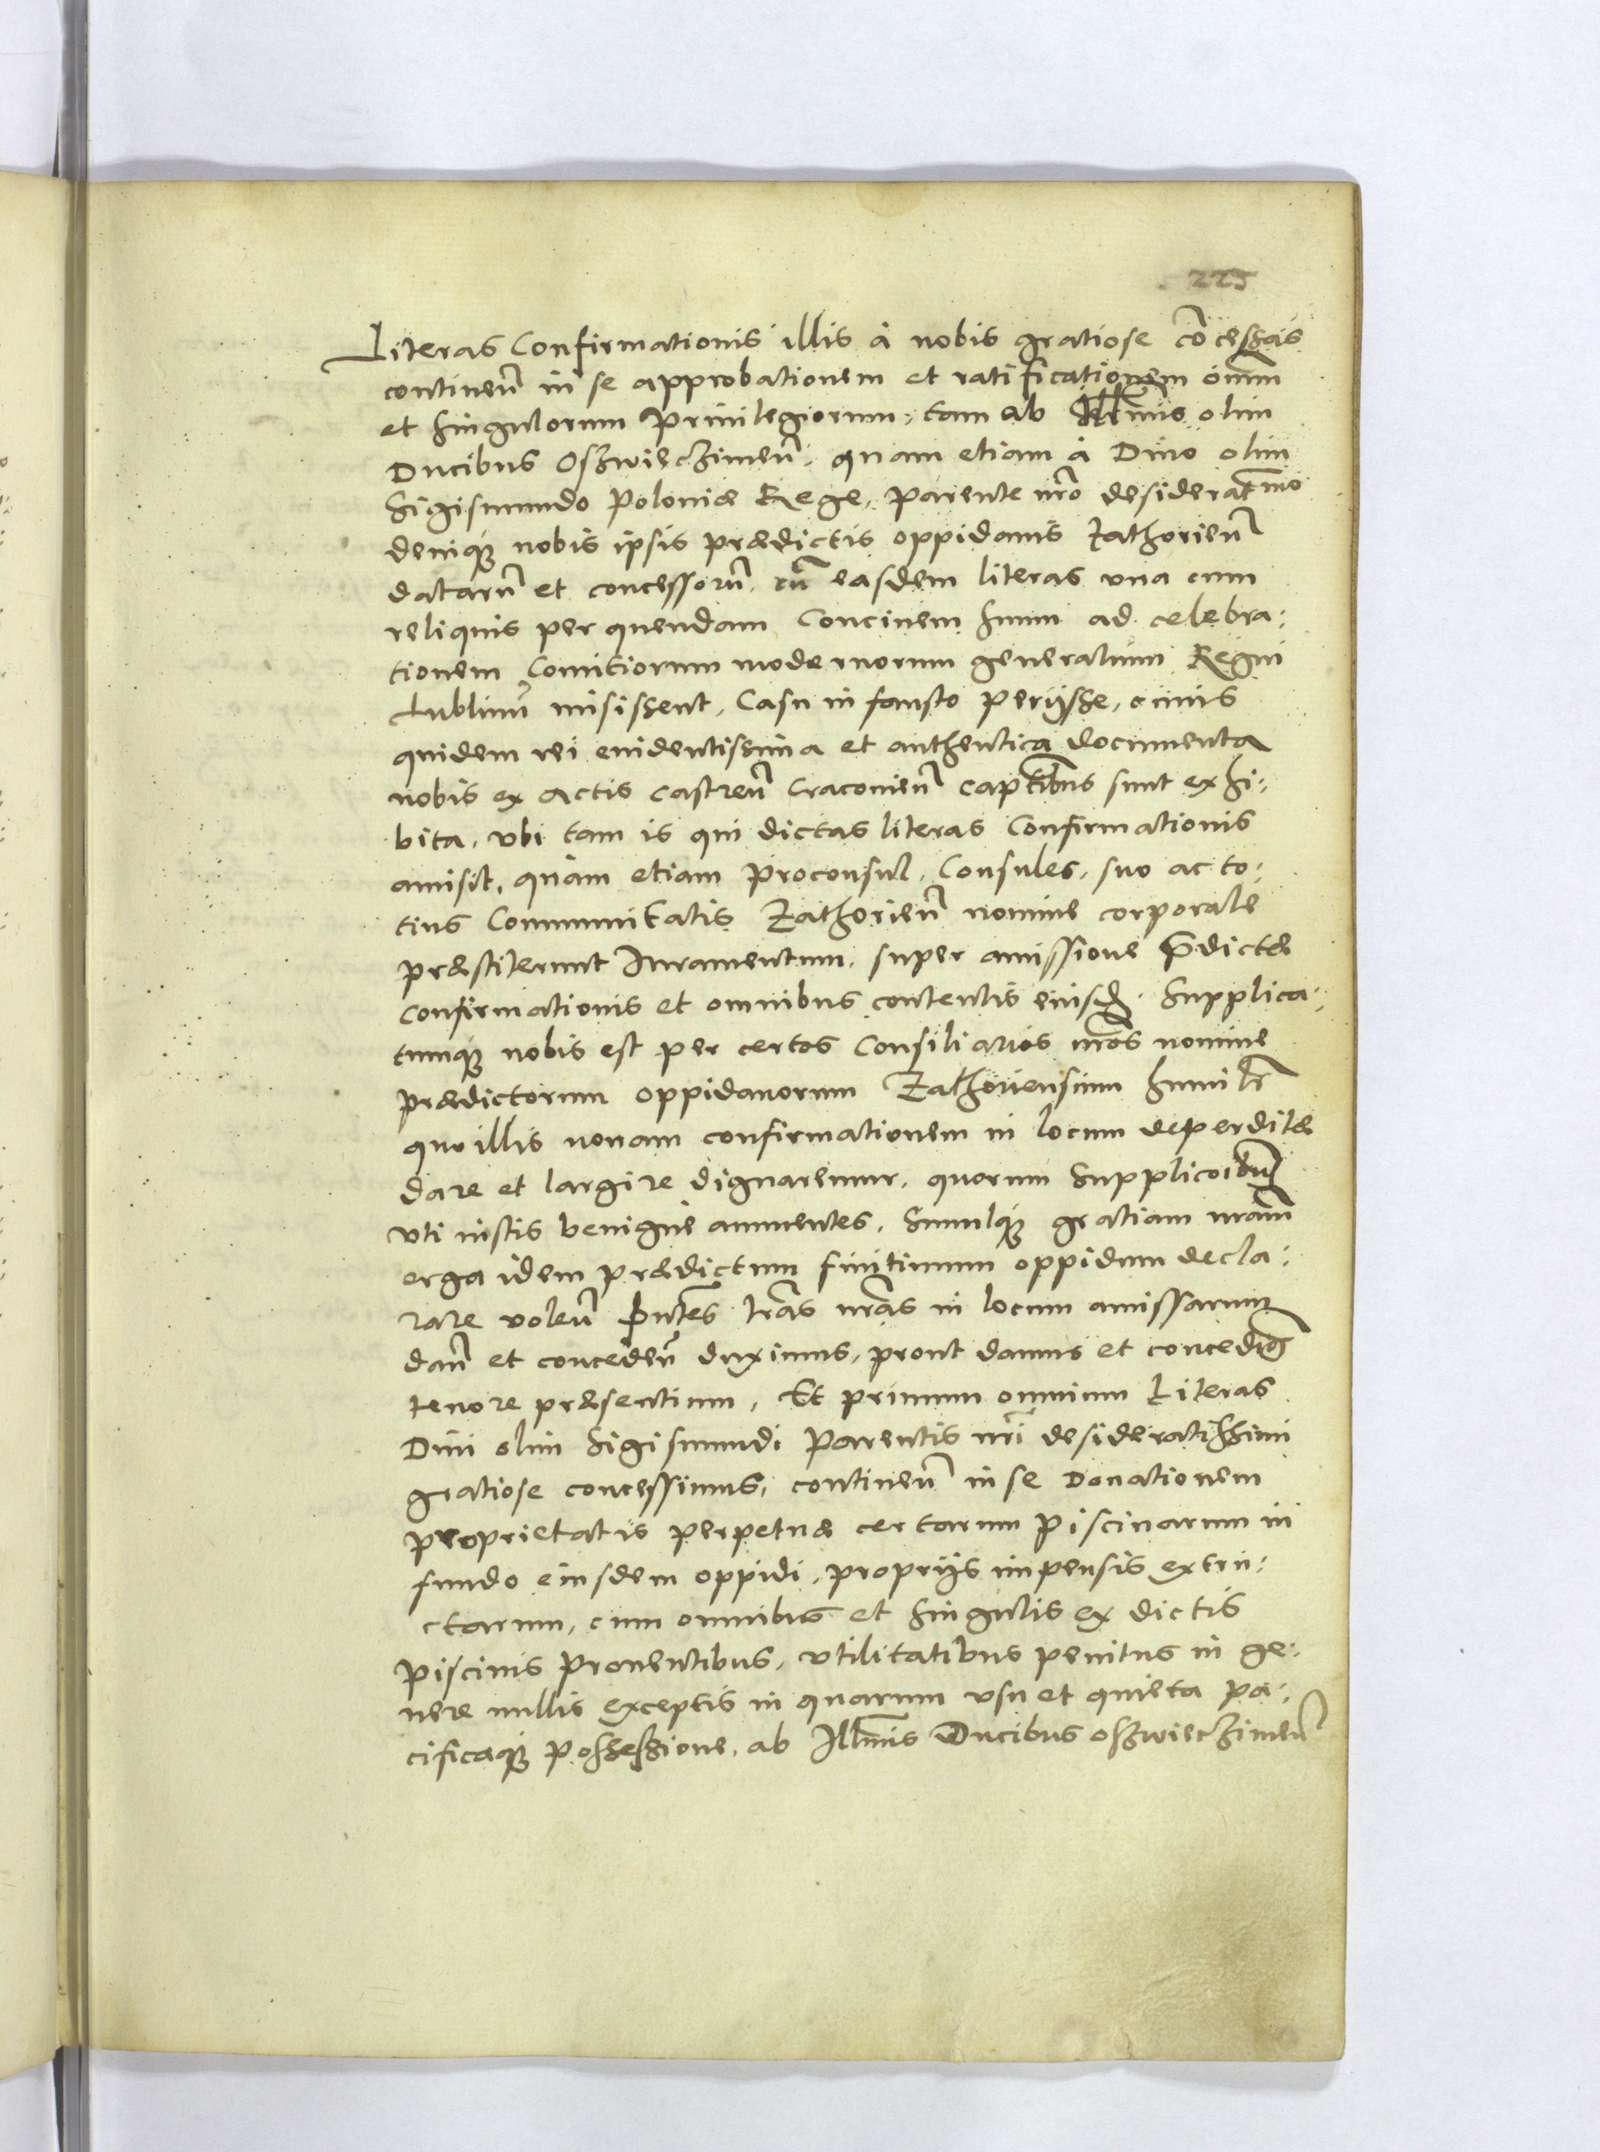 225
Literas Confirmationis illis à nobis gratiose cōcessas
continen̄ in se approbationem et ratificationem om̄m
et singulorum Priuilegiorum, tam ab Illmis olim
Ducibus Oszwieczimen̄. quam etiam à Diuo olim
Sigismundo Poloniæ Rege, Parente nr̄o desideratmo
denique nobis ipsis prædictis oppidanis Zathorien̄
datarū et concessorū, cū easdem literas vna cum
reliquis per quendam Conciuem suum ad celebra-
tionem Comitiorum modernorum generalium Regni
Lublinū misissent, Casu infausto perijsse, cuius
quidem rei euidentissima et authentica documenta
nobis ex Actis castren̄ Cracouien̄ capitibus sunt exhi-
bita, vbi tam is qui dictas literas Confirmationis
amisit, quam etiam Proconsul, Consules, suo ac to-
tius Communitatis Zathorien̄ nomine corporale
præstiterunt Iuramentum, super amissione p̄dictæ
confirmationis et omnibus contentis eiusd. Supplica-
tumque nobis est per certos Consiliarios nr̄os nomine
prædictorum oppidanorum Zathoriensium humilr̄
quo illis nouam confirmationem in locum deperditæ
dare et largire dignaremur, quorum Supplicōibus
vti iustis benigne annuentes, Simulque gratiam nr̄am
erga idem prædictum finitimum oppidum decla-
rare volen̄ p̄ntes lr̄as nr̄as in locum amissarum
dan̄ et conceden̄ duximus, prout damus et concedim9
tenore præsentium, Et primum omnium Literas
Diui olim Sigismundi Parentis nr̄i desideratissimi
gratiose concessimus, continen̄ in se Donationem
proprietatis perpetuæ certarum piscinarum in
fundo eiusdem oppidi, proprijs impensis extru-
ctarum, cum omnibus et singulis ex dictis
piscinis Prouentibus, vtilitatibus penitus in ge-
nere nullis exceptis in quarum vsu et quieta pa-
cificaque Possessione, ab Illmis Ducibus oszwieczimen̄